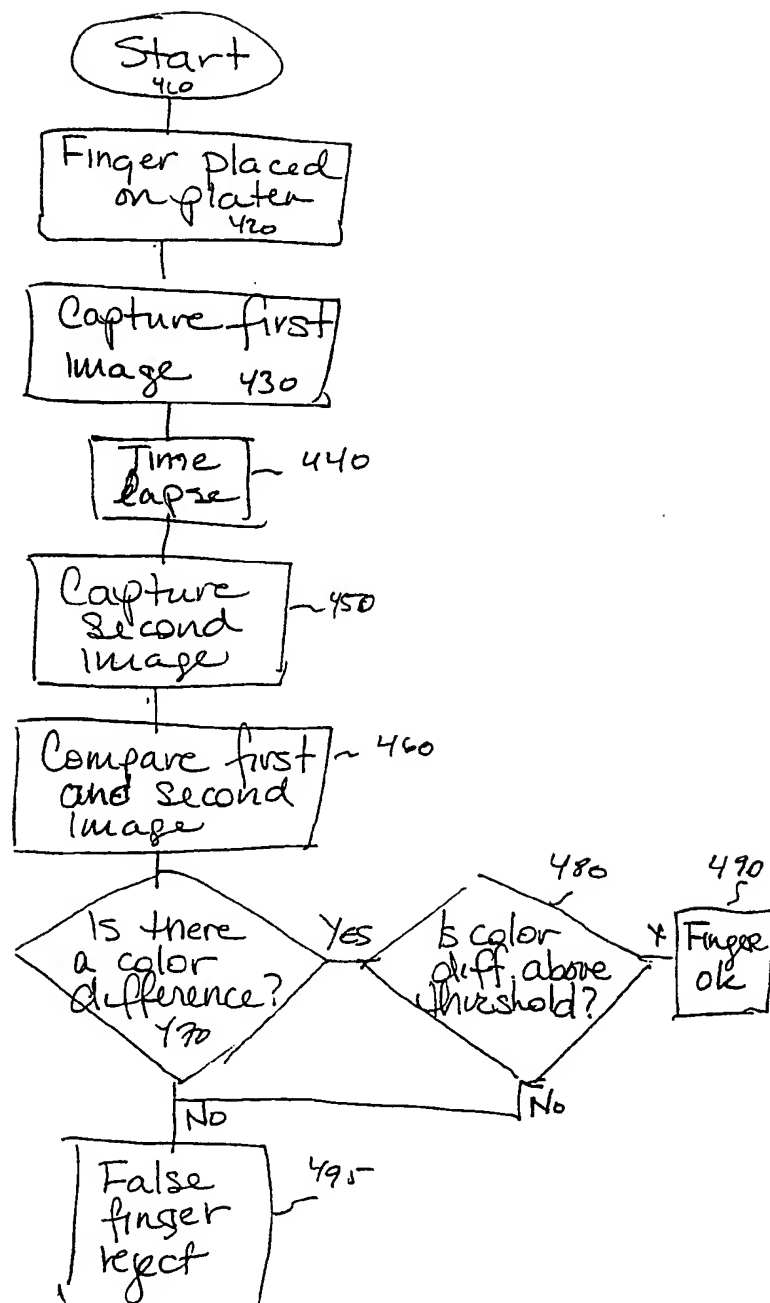 Start
410
Finger placed
on platen
420
Capture first
Image 430
Time
lapse
440
Capture
second
Image
450
Compare first
and second
Image
460
Is there
a color
difference?
470
Yes
Is color
diff. above
threshold?
480
Y
Finger
ok
490
No
No
False
finger
reject
495